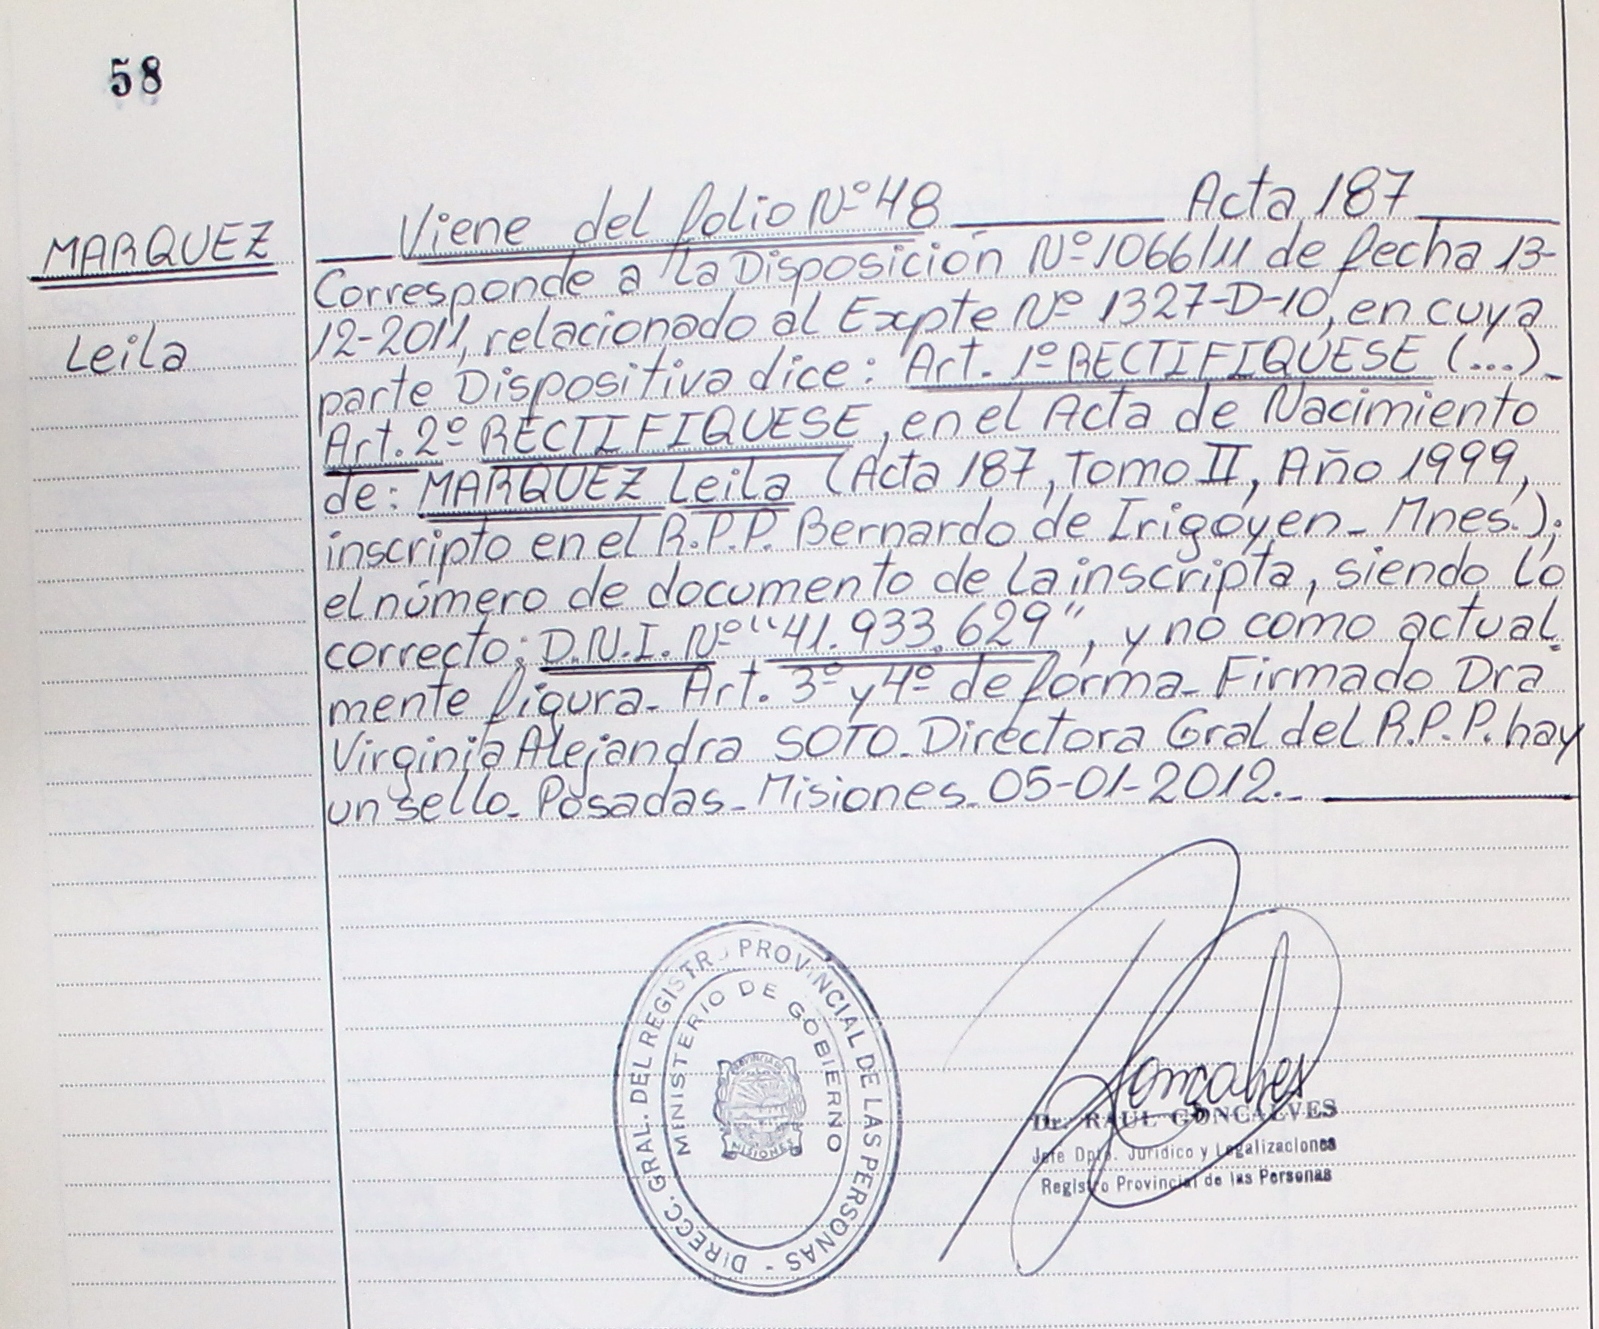 58
MARQUEZ
Leila
Viene del folio Nº 48 Acta 187
Corresponde a la Disposición Nº 1066/11 de fecha 13-
12-2011, relacionado al Expte Nº 1327-D-10, en cuya
parte Dispositiva dice: Art. 1º RECTIFIQUESE (...)_
Art. 2º RECTIFIQUESE, en el Acta de Nacimiento
de: MARQUEZ Leila (Acta 187, Tomo II, Año 1999,
inscripto en el R.P.P. Bernardo de Irigoyen_ Mnes.);
el número de documento de la inscripta, siendo lo
correcto: D.N.I. Nº "41.933.629", y no como actual
mente figura_ Art. 3º y 4º de forma_ Firmado Dra
Virginia Alejandra SOTO_ Directora Gral del R.P.P. hay
un sello_ Posadas_ Misiones_ 05-01-2012._
DIRECC. GRAL. DEL REGISTRO PROVINCIAL DE LAS PERSONAS -
MINISTERIO DE GOBIERNO
PROVINCIA DE
MISIONES
Goncalves
Dr. RAUL GONCALVES
Jefe Dpto. Jurídico y Legalizaciones
Registro Provincial de las Personas